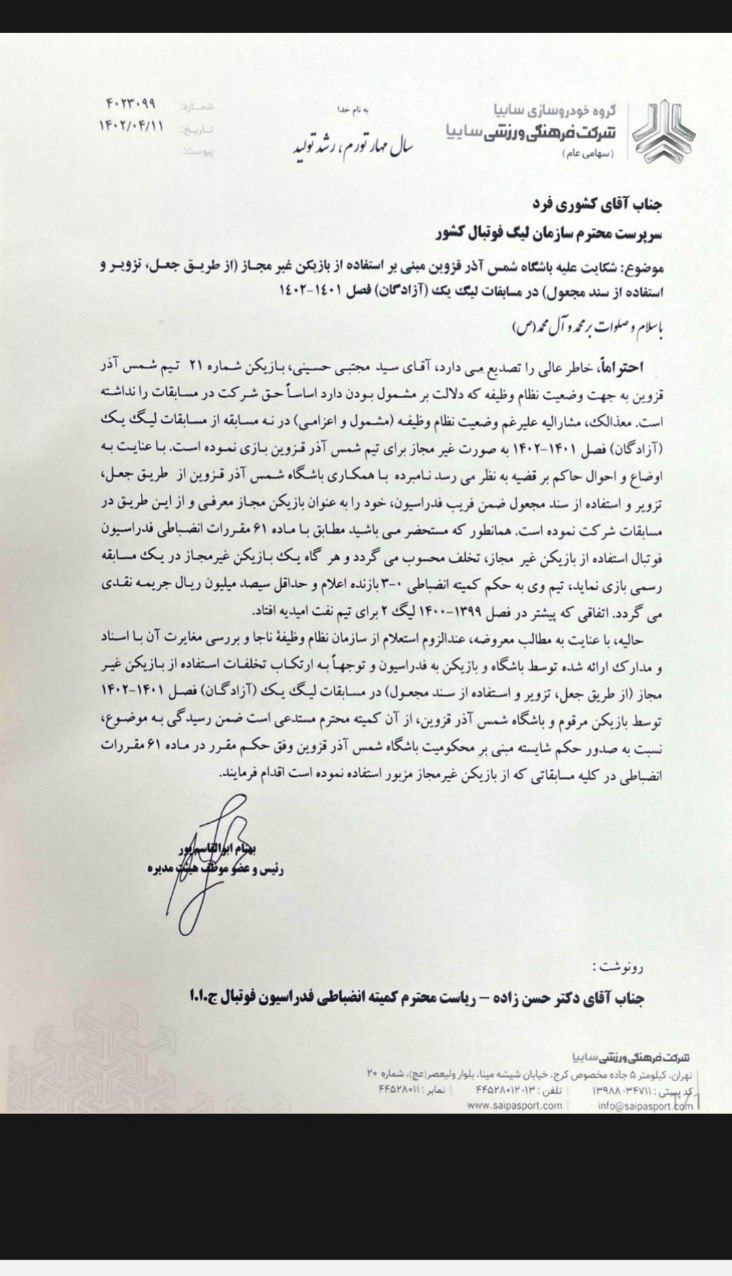 گروه خودروسازی سایپا
شرکت فرهنگی ورزشی سایپا
(سهامی عام)
به نام خدا
سال مهار تورم، رشد تولید
شماره: ۴۰۲۳۰۹۹
تاریخ: ۱۴۰۲/۰۴/۱۱
پیوست:
جناب آقای کشوری فرد
سرپرست محترم سازمان لیگ فوتبال کشور
موضوع: شکایت علیه باشگاه شمس آذر قزوین مبنی بر استفاده از بازیکن غیر مجاز (از طریق جعل، تزویر و
استفاده از سند مجعول) در مسابقات لیگ یک (آزادگان) فصل ۱۴۰۱-۱۴۰۲
باسلام و صلوات بر محمد و آل محمد (ص)
احتراماً، خاطر عالی را تصدیع می دارد، آقای سید مجتبی حسینی، بازیکن شماره ۲۱ تیم شمس آذر
قزوین به جهت وضعیت نظام وظیفه که دلالت بر مشمول بودن دارد اساساً حق شرکت در مسابقات را نداشته
است. معذالک، مشارالیه علیرغم وضعیت نظام وظیفه (مشمول و اعزامی) در نه مسابقه از مسابقات لیگ یک
(آزادگان) فصل ۱۴۰۱-۱۴۰۲ به صورت غیر مجاز برای تیم شمس آذر قزوین بازی نموده است. با عنایت به
اوضاع و احوال حاکم بر قضیه به نظر می رسد نامبرده با همکاری باشگاه شمس آذر قزوین از طریق جعل،
تزویر و استفاده از سند مجعول ضمن فریب فدراسیون، خود را به عنوان بازیکن مجاز معرفی و از این طریق در
مسابقات شرکت نموده است. همانطور که مستحضر می باشید مطابق با ماده ۶۱ مقررات انضباطی فدراسیون
فوتبال استفاده از بازیکن غیر مجاز، تخلف محسوب می گردد و هر گاه یک بازیکن غیرمجاز در یک مسابقه
رسمی بازی نماید، تیم وی به حکم کمیته انضباطی ۰-۳ بازنده اعلام و حداقل سیصد میلیون ریال جریمه نقدی
می گردد. اتفاقی که پیشتر در فصل ۱۳۹۹-۱۴۰۰ لیگ ۲ برای تیم نفت امیدیه افتاد.
حالیه، با عنایت به مطالب معروضه، عندالزوم استعلام از سازمان نظام وظیفهٔ ناجا و بررسی مغایرت آن با اسناد
و مدارک ارائه شده توسط باشگاه و بازیکن به فدراسیون و توجهاً به ارتکاب تخلفات استفاده از بازیکن غیر
مجاز (از طریق جعل، تزویر و استفاده از سند مجعول) در مسابقات لیگ یک (آزادگان) فصل ۱۴۰۱-۱۴۰۲
توسط بازیکن مرقوم و باشگاه شمس آذر قزوین، از آن کمیته محترم مستدعی است ضمن رسیدگی به موضوع،
نسبت به صدور حکم شایسته مبنی بر محکومیت باشگاه شمس آذر قزوین وفق حکم مقرر در ماده ۶۱ مقررات
انضباطی در کلیه مسابقاتی که از بازیکن غیرمجاز مزبور استفاده نموده است اقدام فرمایند.
بهنام ابوالقاسم‌پور
رئیس و عضو موظف هیئت مدیره
رونوشت :
جناب آقای دکتر حسن زاده – ریاست محترم کمیته انضباطی فدراسیون فوتبال ج.ا.ا
شرکت فرهنگی ورزشی سایپا
تهران، کیلومتر ۵ جاده مخصوص کرج، خیابان شیشه مینا، بلوار ولیعصر(عج)، شماره ۲۰
کد پستی : ۳۴۷۱۱-۱۳۹۸۸ | تلفن : ۱۳-۴۴۵۲۸۰۱۲ | نمابر : ۴۴۵۲۸۰۱۱
info@saipasport.com | www.saipasport.com